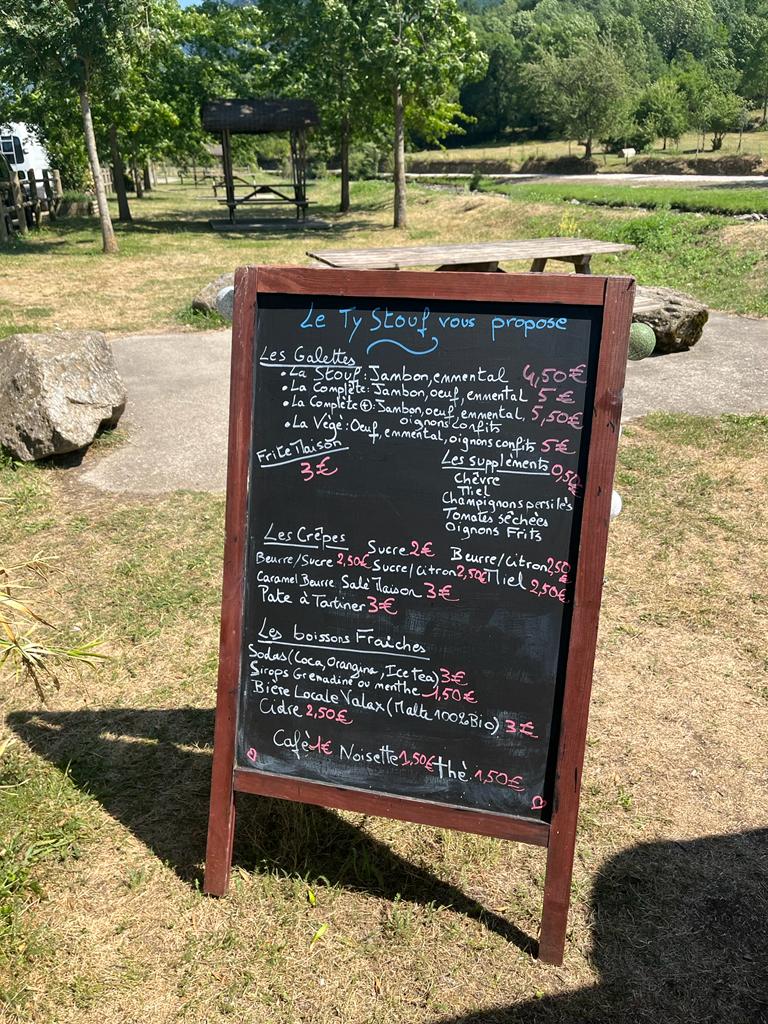 Le Ty Stouf vous propose
Les Galettes
• La Stouf : Jambon, emmental 4,50€
• La Complète : Jambon, oeuf, emmental 5€
• La Complète + : Jambon, oeuf, emmental, oignons confits 5,50€
• La Végé : Oeuf, emmental, oignons confits 5€
Frite Maison
3€
Les suppléments 0,50€
Chèvre
Miel
Champignons persilés
Tomates séchées
Oignons Frits
Les Crêpes Sucre 2€ Beurre/Citron 2,50€
Beurre/Sucre 2,50€ Sucre/Citron 2,50€ Miel 2,50€
Caramel Beurre Salé Maison 3€
Pate à Tartiner 3€
Les boissons Fraîches
Sodas (Coca, Orangina, Ice tea) 3€
Sirops Grenadine ou menthe 1,50€
Bière Locale Valax (Malte 100% Bio) 3€
Cidre 2,50€
Café 1€ Noisette 1,50€ thé 1,50€